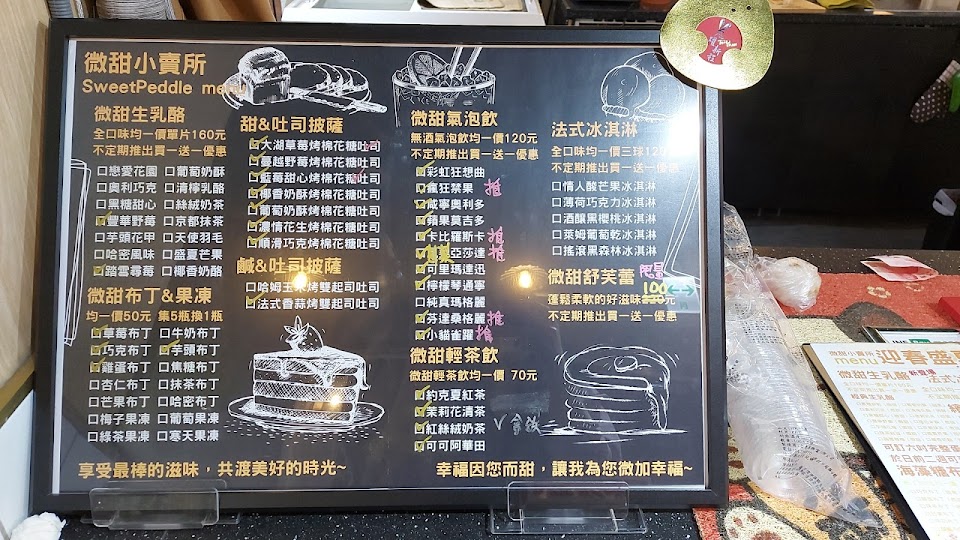 微甜小賣所
SweetPeddle menu
微甜生乳酪
全口味均一價單片160元
不定期推出買一送一優惠
口戀愛花園 口葡萄奶酥
口奧利巧克 口清檸乳酪
口黑糖甜心 口絲絨奶茶
口豐華野莓 口京都抹茶
口芋頭花甲 口天使羽毛
口哈密風味 口盛夏芒果
口踏雲尋莓 口椰香奶酪
微甜布丁&果凍
均一價50元 集5瓶換1瓶
口草莓布丁 口牛奶布丁
口巧克布丁 口芋頭布丁
口雞蛋布丁 口焦糖布丁
口杏仁布丁 口抹茶布丁
口芒果布丁 口哈密布丁
口梅子果凍 口葡萄果凍
口綠茶果凍 口寒天果凍
甜&吐司披薩
口大湖草莓烤棉花糖吐司
口蔓越野莓烤棉花糖吐司
口藍莓甜心烤棉花糖吐司
口椰香奶酥烤棉花糖吐司
口葡萄奶酥烤棉花糖吐司
口濃情花生烤棉花糖吐司
口順滑巧克烤棉花糖吐司
鹹&吐司披薩
口哈姆玉米烤雙起司吐司
口法式香蒜烤雙起司吐司
微甜氣泡飲
無酒氣泡飲均一價120元
不定期推出買一送一優惠
口彩虹狂想曲
口瘋狂禁果 推
口咸寧奧利多
口蘋果莫吉多
口卡比羅斯卡 推
亞莎達 推
口可里瑪達迅
口檸檬琴通寧
口純真瑪格麗
口芬達桑格麗 推
口小貓雀躍 推
微甜輕茶飲
微甜輕茶飲均一價 70元
口約克夏紅茶
口茉莉花清茶
口紅絲絨奶茶
口可可阿華田
法式冰淇淋
全口味均一價三球120元
不定期推出買一送一優惠
口情人酸芒果冰淇淋
口薄荷巧克力冰淇淋
口酒釀黑櫻桃冰淇淋
口萊姆葡萄乾冰淇淋
口搖滾黑森林冰淇淋
微甜舒芙蕾
100
蓬鬆柔軟的好滋味 元
不定期推出買一送一優惠
享受最棒的滋味,共渡美好的時光~
幸福因您而甜,讓我為您微加幸福~
微甜小賣所
menu
迎春盛
微甜生乳酪
法式
海藻糖布